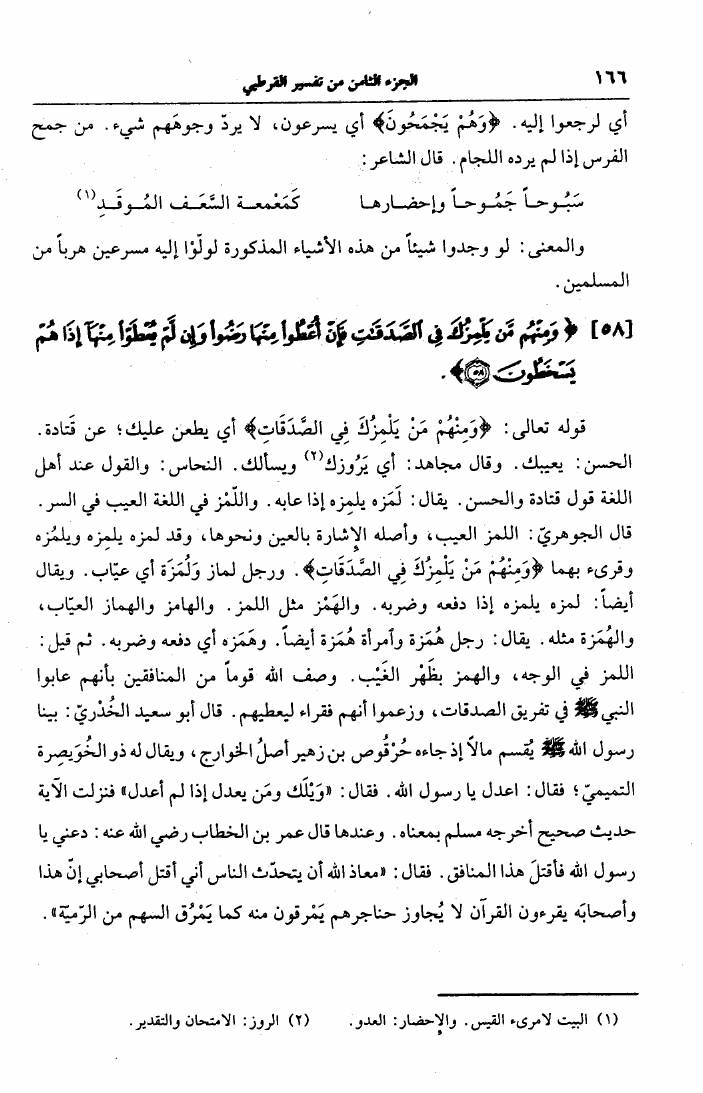 ١٦٦ الجزء الثامن من تفسير القرطبي
أي لرجعوا إليه. ﴿وَهُمْ يَجْمَحُونَ﴾ أي يسرعون، لا يردّ وجوهَهم شيء. من جمح
الفرس إذا لم يرده اللجام. قال الشاعر:
سَبُـوحـاً جَمُـوحـاً وإحضـارهـا كَمَعْمعـة السَّعَـف المُـوقَـدِ(١)
والمعنى: لو وجدوا شيئاً من هذه الأشياء المذكورة لولّوْا إليه مسرعين هرباً من
المسلمين.
[٥٨] ﴿وَمِنْهُم مَّن يَلْمِزُكَ فِي الصَّدَقَٰتِ فَإِنْ أُعْطُوا مِنْهَا رَضُوا وَإِن لَّمْ يُعْطَوْا مِنْهَآ إِذَا هُمْ
يَسْخَطُونَ ۝٥٨﴾.
قوله تعالى: ﴿وَمِنْهُمْ مَنْ يَلْمِزُكَ فِي الصَّدَقَاتِ﴾ أي يطعن عليك؛ عن قَتادة.
الحسن: يعيبك. وقال مجاهد: أي يَرُوزك(٢) ويسألك. النحاس: والقول عند أهل
اللغة قول قتادة والحسن. يقال: لَمَزه يلمِزه إذا عابه. واللَّمْز في اللغة العيب في السر.
قال الجوهريّ: اللمز العيب، وأصله الإشارة بالعين ونحوها، وقد لمزه يلمِزه ويلمُزه
وقرىء بهما ﴿وَمِنْهُمْ مَنْ يَلْمِزُكَ فِي الصَّدَقَاتِ﴾. ورجل لماز ولُمَزَة أي عيّاب. ويقال
أيضاً: لمزه يلمزه إذا دفعه وضربه. والهَمْز مثل اللمز. والهامز والهماز العيّاب،
والهُمَزة مثله. يقال: رجل هُمَزة وٱمرأة هُمَزة أيضاً. وهَمَزه أي دفعه وضربه. ثم قيل:
اللمز في الوجه، والهمز بظَهْر الغَيْب. وصف الله قوماً من المنافقين بأنهم عابوا
النبي ﷺ في تفريق الصدقات، وزعموا أنهم فقراء ليعطيهم. قال أبو سعيد الخُدْريّ: بينا
رسول الله ﷺ يُقسم مالاً إذ جاءه حُرْقُوص بن زهير أصلُ الخوارج، ويقال له ذو الخُوَيصِرة
التميميّ؛ فقال: اعدل يا رسول الله. فقال: «وَيْلَك ومَن يعدل إذا لم أعدل» فنزلت الآية
حديث صحيح أخرجه مسلم بمعناه. وعندها قال عمر بن الخطاب رضي الله عنه: دعني يا
رسول الله فأقتلَ هذا المنافق. فقال: «معاذ الله أن يتحدّث الناس أني أقتل أصحابي إنّ هذا
وأصحابَه يقرءون القرآن لا يُجاوز حناجرهم يَمْرقون منه كما يَمْرُق السهم من الرّميّة».
(١) البيت لامرىء القيس. والإحضار: العدو. (٢) الروز: الامتحان والتقدير.